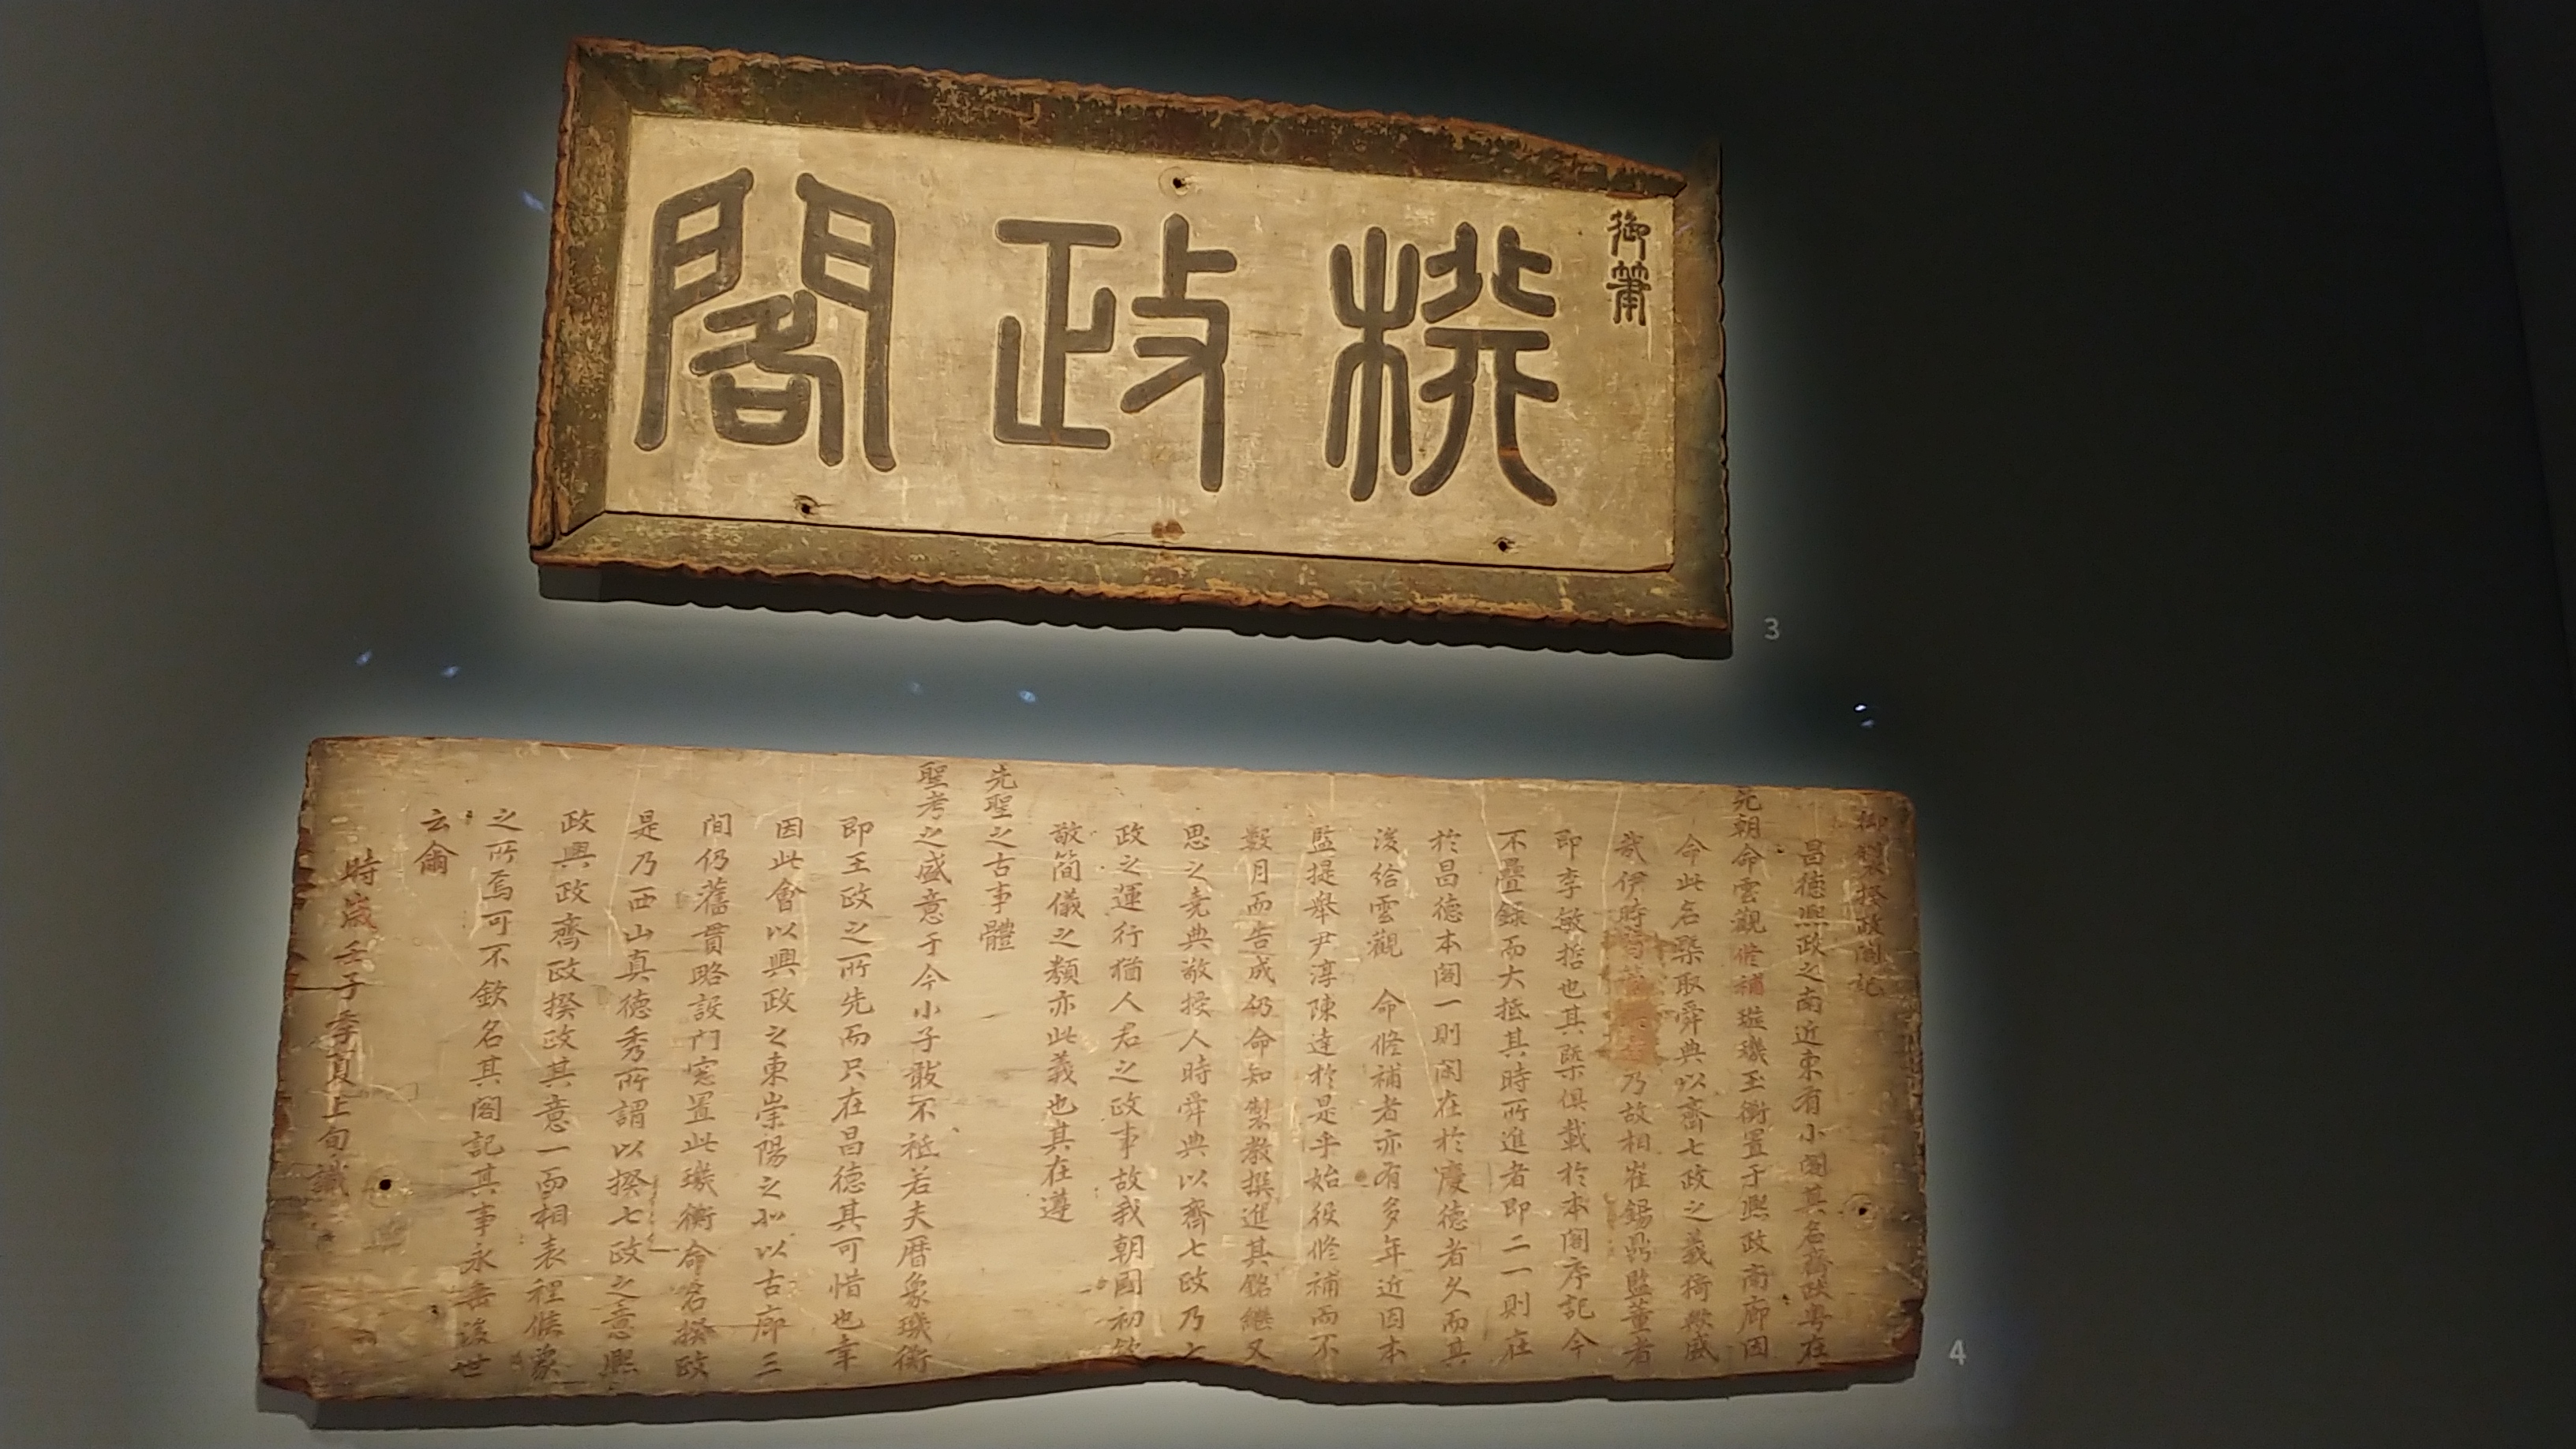 御筆
揆政閣
3
御製揆政閣記
昌德熙政之南近東有小閣其名齊政粤在
先朝命雲觀修補璇璣玉衡置于熙政南廊因
命此名槩取舜典以齊七政之義猗歟盛
哉伊時 乃故相崔錫鼎監董者
即李敏哲也其槩俱載於本閣序記今
不疊錄而大抵其時所進者即二一則在
於昌德本閣一則閣在於慶德者久而其
後給雲觀 命修補者亦有多年近因本
監提舉尹淳陳達於是乎始役修補而不
數月而告成仍命知製教撰進其銘繼又
思之堯典敬授人時舜典以齊七政乃
政之運行猶人君之政事故我朝國初
敬簡儀之類亦此義也其在遵
先聖之古事體
聖考之盛意于今小子敢不祗若夫曆象璣衡
即王政之所先而只在昌德其可惜也幸
因此會以興政之東崇陽之北以古廊三
間仍舊貫略設門窓置此璣衡命名揆政
是乃西山真德秀所謂以揆七政之意熙
政興政齊政揆政其意一而相表裡候象
之所焉可不欽名其閣記其事永垂後世
云爾
時歲壬子季夏上旬識
4